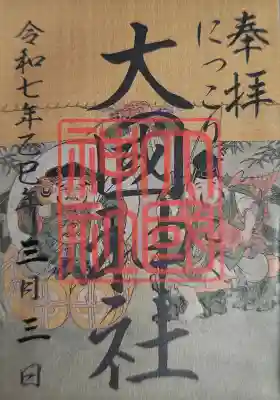 奉拝
にっこり
大國神社
令和七年乙巳年三月三日
大國神社